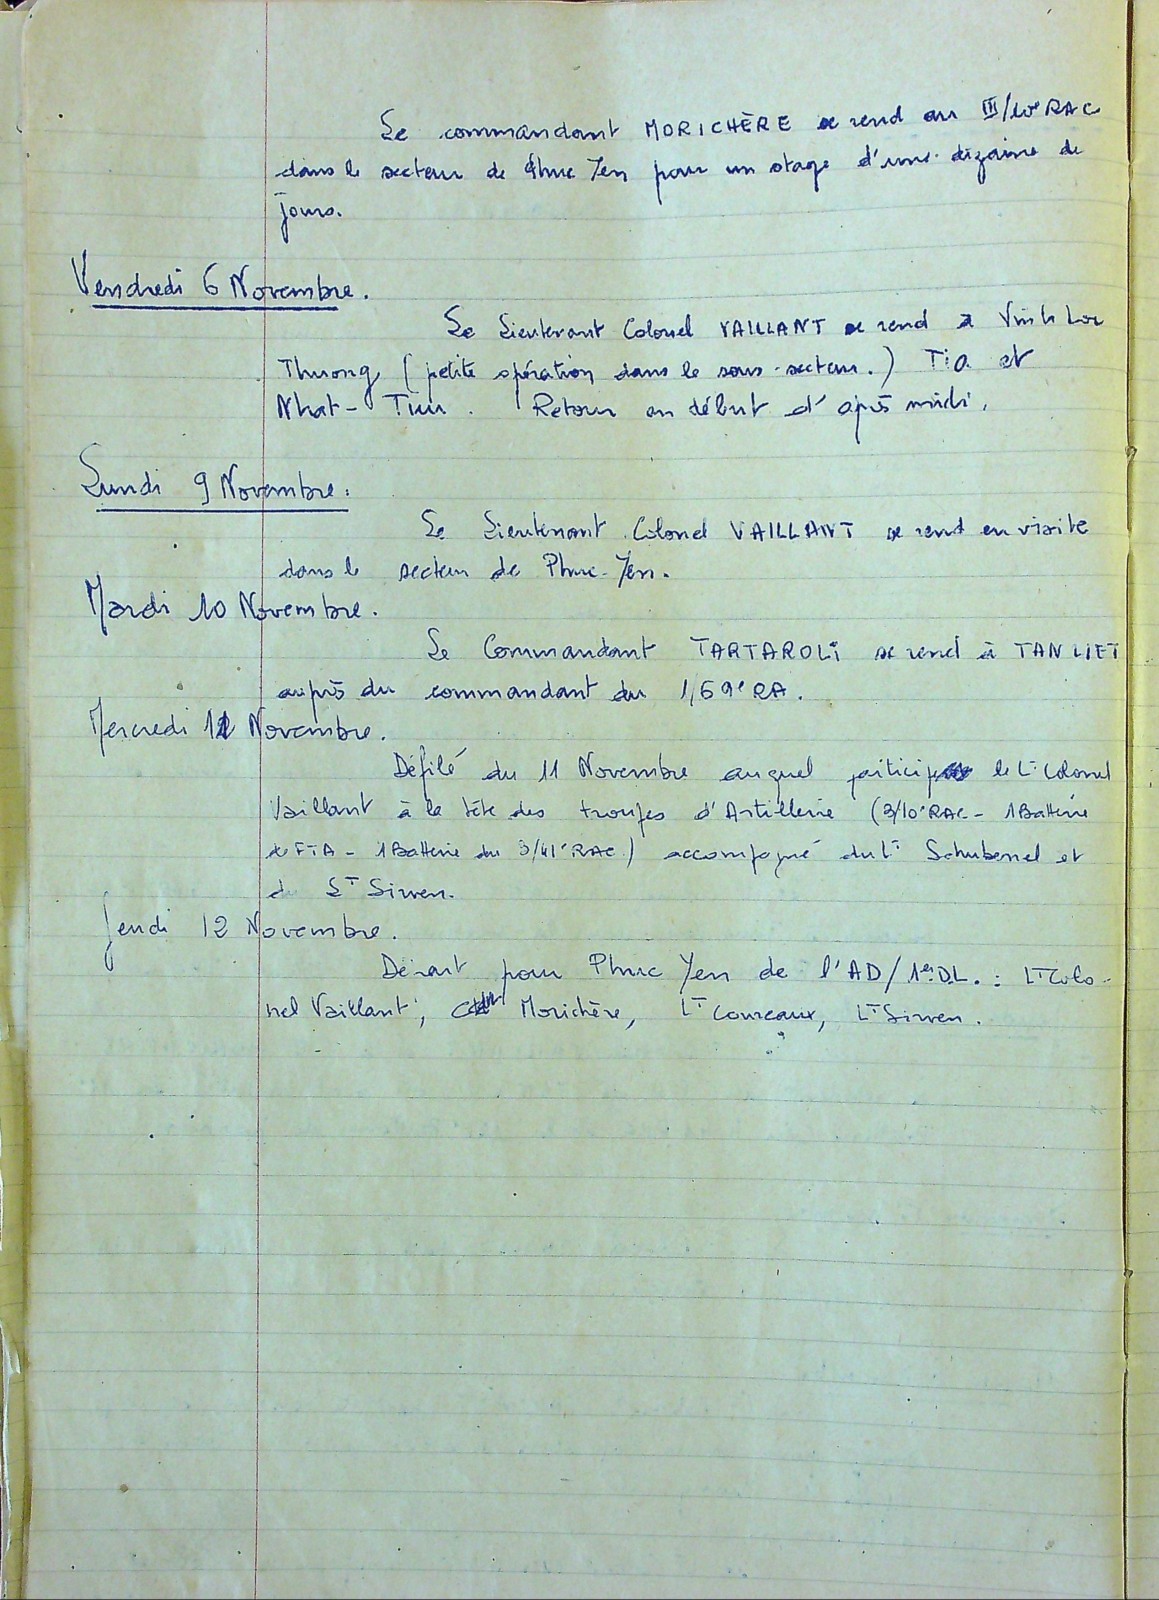 Le commandant MORICHÈRE se rend au III/10e RAC
dans le secteur de Phuc Yen pour un stage d'une dizaine de
jours.
Vendredi 6 Novembre.
Le Lieutenant Colonel VAILLANT se rend à Vinh Loc
Thuong (petite opération dans le sous-secteur.) Tio et
Nhat-Tuu. Retour en début d'après midi.
Lundi 9 Novembre:
Le Lieutenant Colonel VAILLANT se rend en visite
dans le secteur de Phuc-Yen.
Mardi 10 Novembre.
Le Commandant TARTAROLI se rend à TAN LIET
auprès du commandant du 1/69e RA.
Mercredi 11 Novembre.
Défilé du 11 Novembre auquel participe le Lt Colonel
Vaillant à la tête des troupes d'Artillerie (3/10e RAC - 1 Batterie
de FTA - 1 Batterie du 3/41e RAC) accompagné du Lt Schubenel et
du Lt Sirven.
Jeudi 12 Novembre.
Départ pour Phuc Yen de l'AD/1ère D.L. : Lt Colo-
nel Vaillant, Cdt Morichère, Lt Coureaux, Lt Sirven.